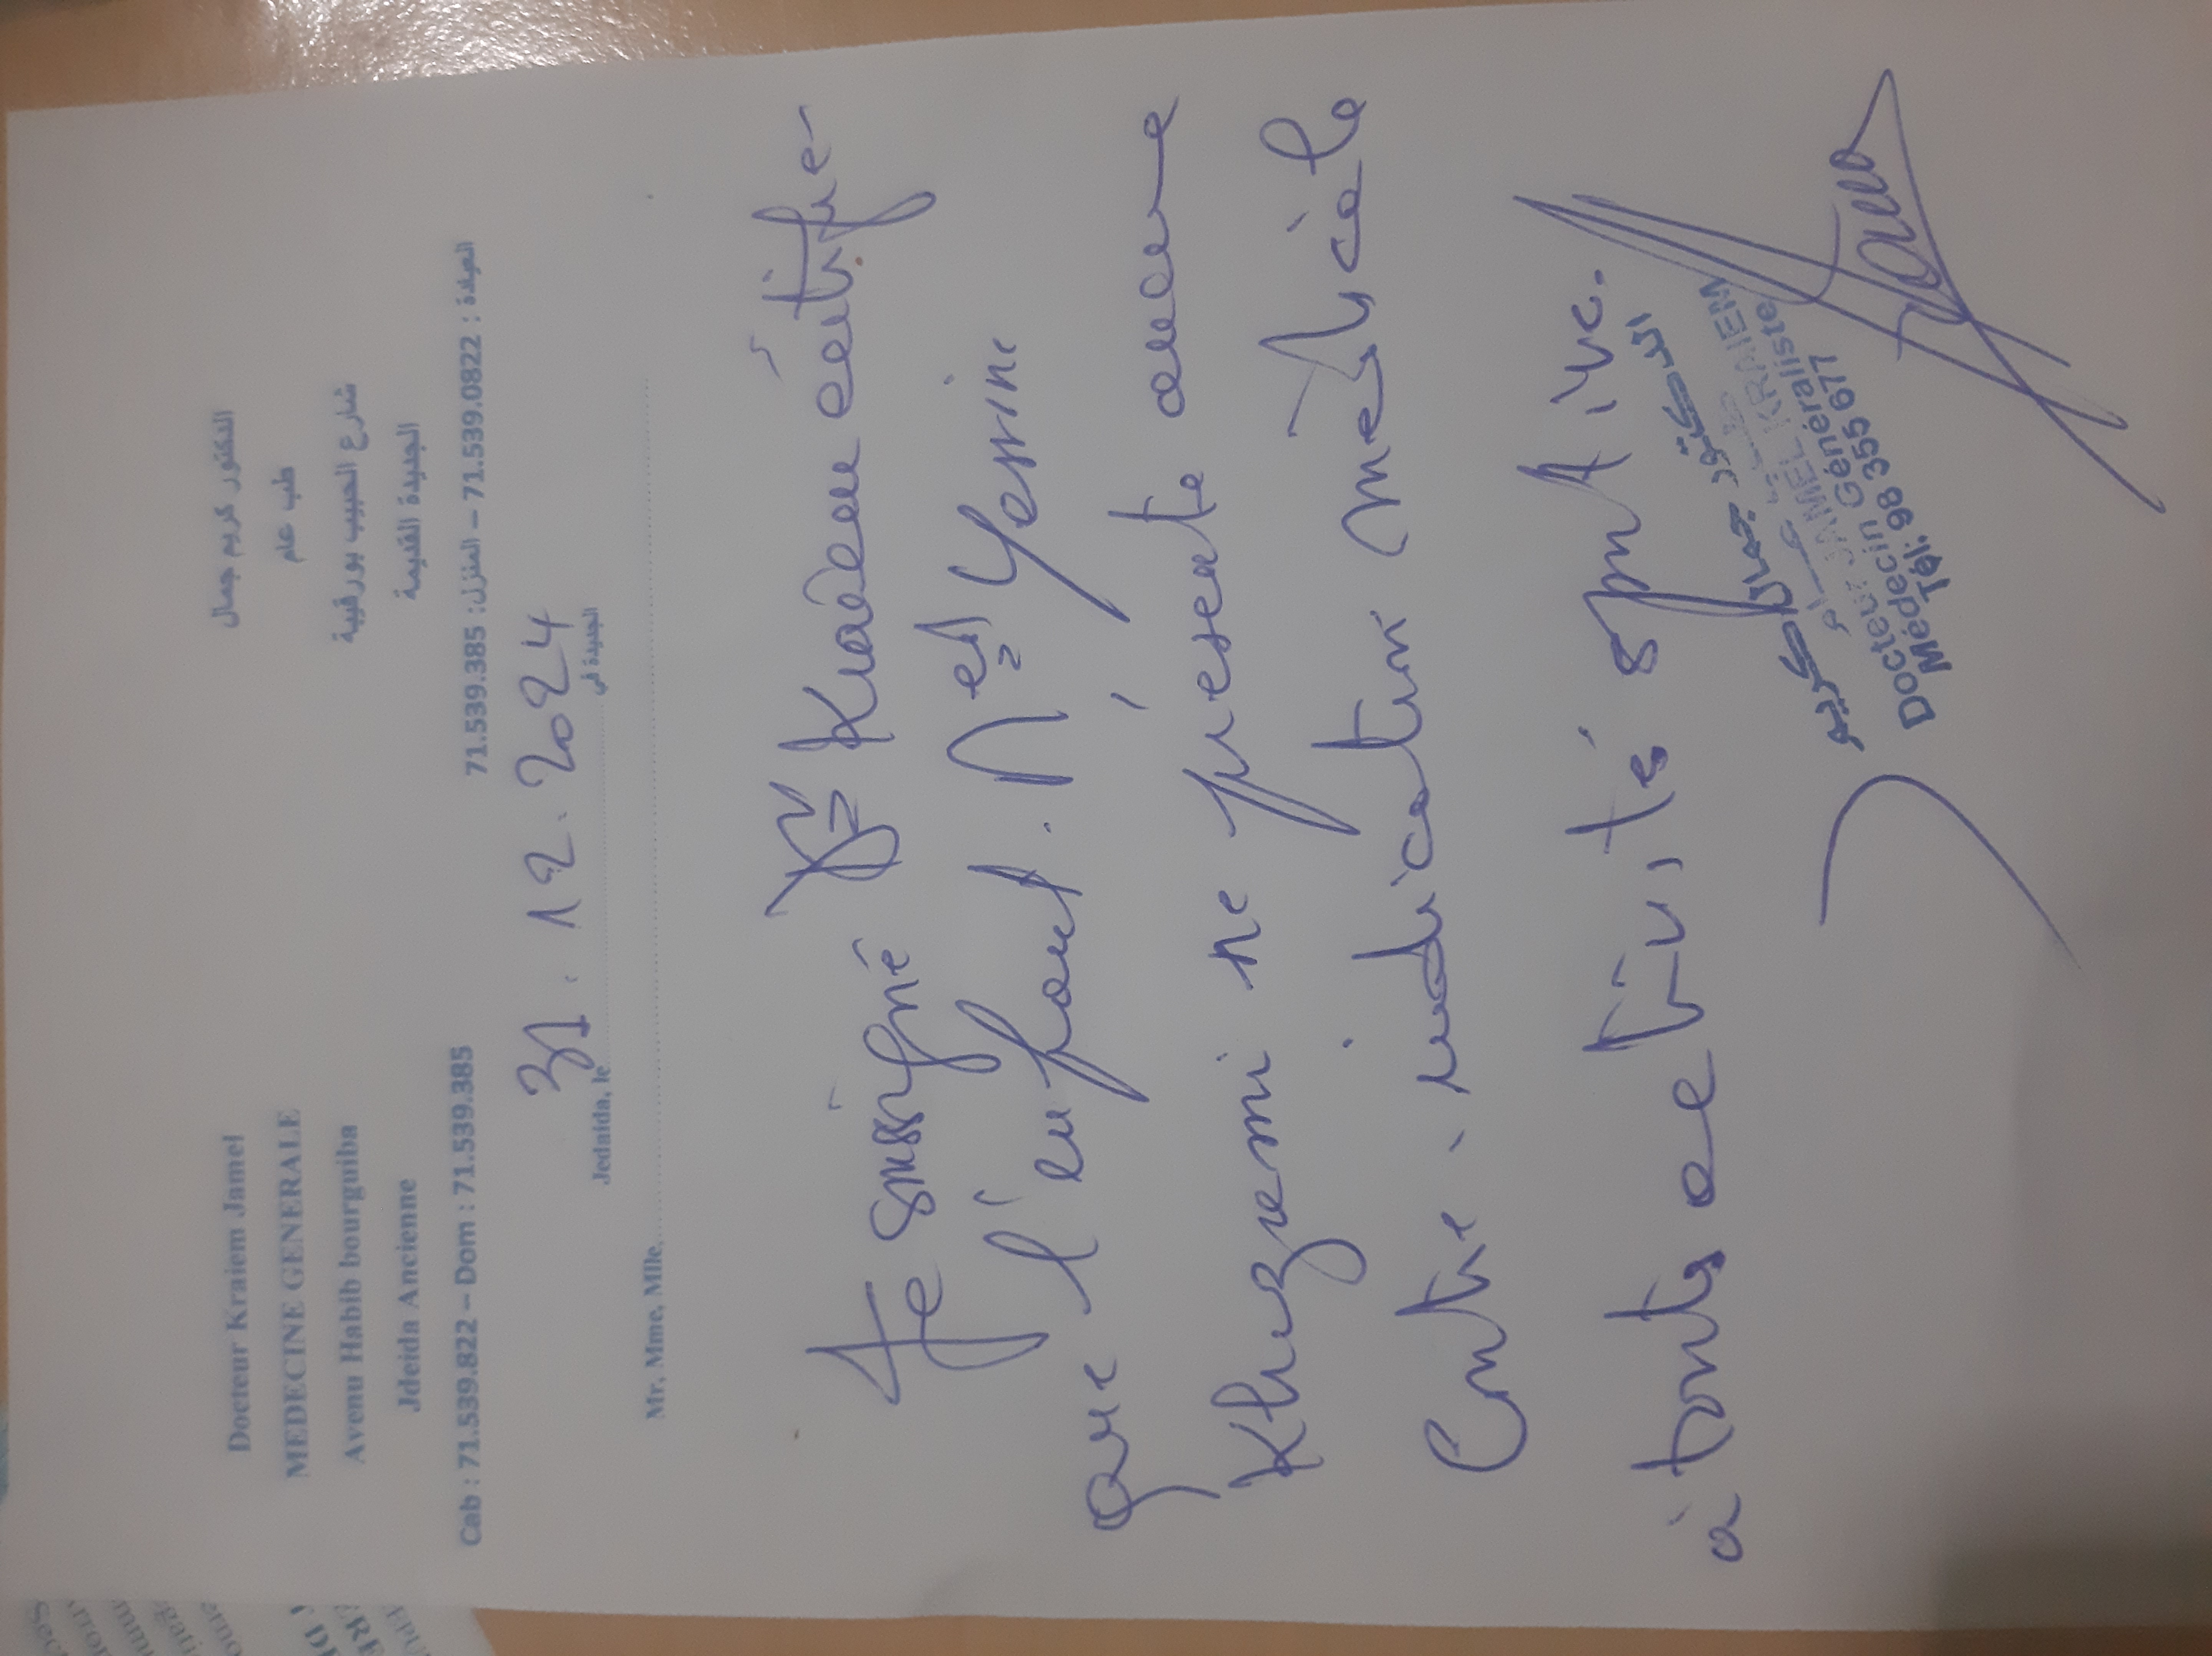 Docteur Kraiem Jamel
MEDECINE GENERALE
Avenu Habib bourguiba
Jdeida Ancienne
Cab : 71.539.822 – Dom : 71.539.385
الدكتور كريم جمال
طب عام
شارع الحبيب بورقيبة
الجديدة القديمة
العيادة : 71.539.0822 – المنزل: 71.539.385
31.12.2024
Jedaida, le الجديدة في
Mr, Mme, Mlle,
Je soussigné Dr Kraiem certifie
que l'enfant. Med Yessine
Khuzemi ne présente aucune
Contre-indication médicale
à toute activité sportive.
الدكتور جمال كريم
طب عام
Docteur JAMMEL KRAIEM
Médecin Généraliste
Tél: 98 355 677